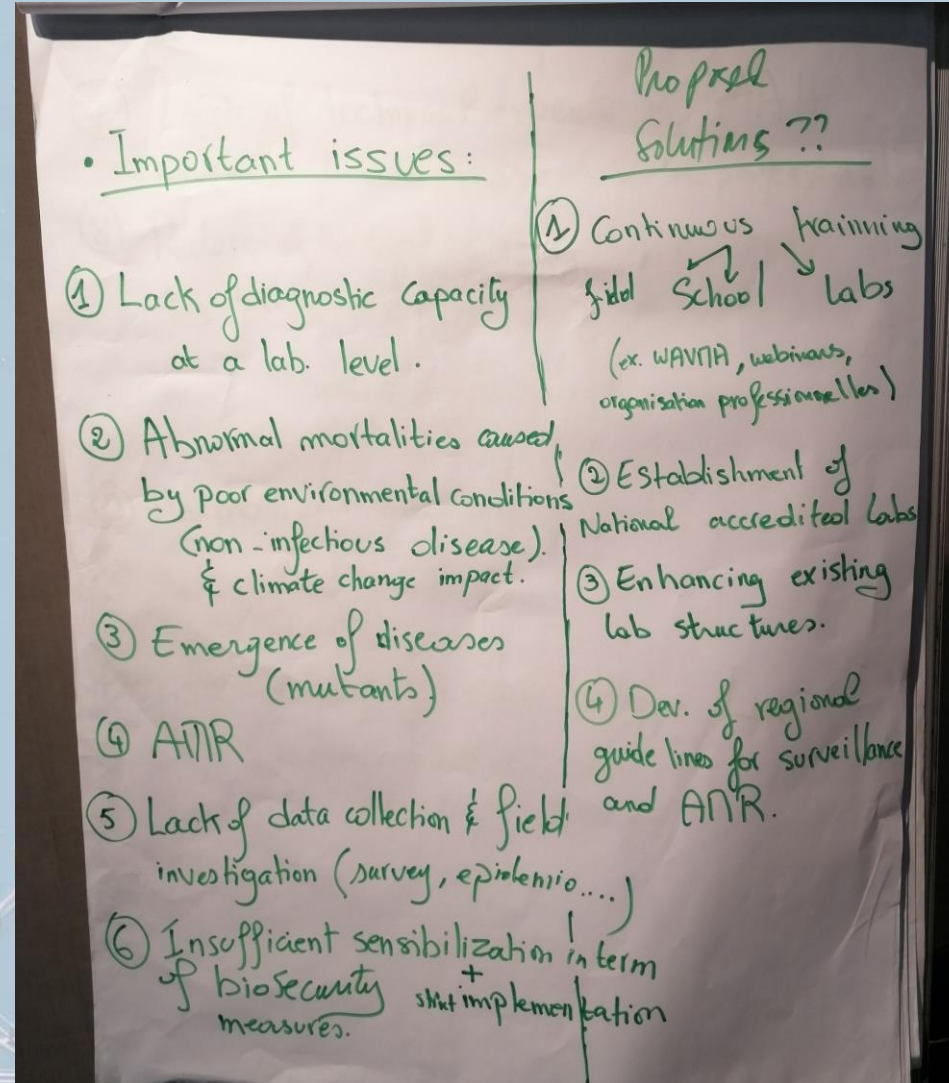 • Important issues:
① Lack of diagnostic Capacity
at a lab. level.
② Abnormal mortalities caused
by poor environmental conditions
(non-infectious disease).
& climate change impact.
③ Emergence of diseases
(mutants)
④ AMR
⑤ Lack of data collection & field
investigation (survey, epidemio....)
⑥ Insufficient sensibilization in term
of biosecurity + strict implementation
measures.
Proposed
Solutions ??
① Continuous trainning
field School labs
(ex. WAVMA, webinars,
organisation professionnelles)
② Establishment of
National accredited labs
③ Enhancing existing
lab structures.
④ Dev. of regional
guide lines for surveillance
and AMR.